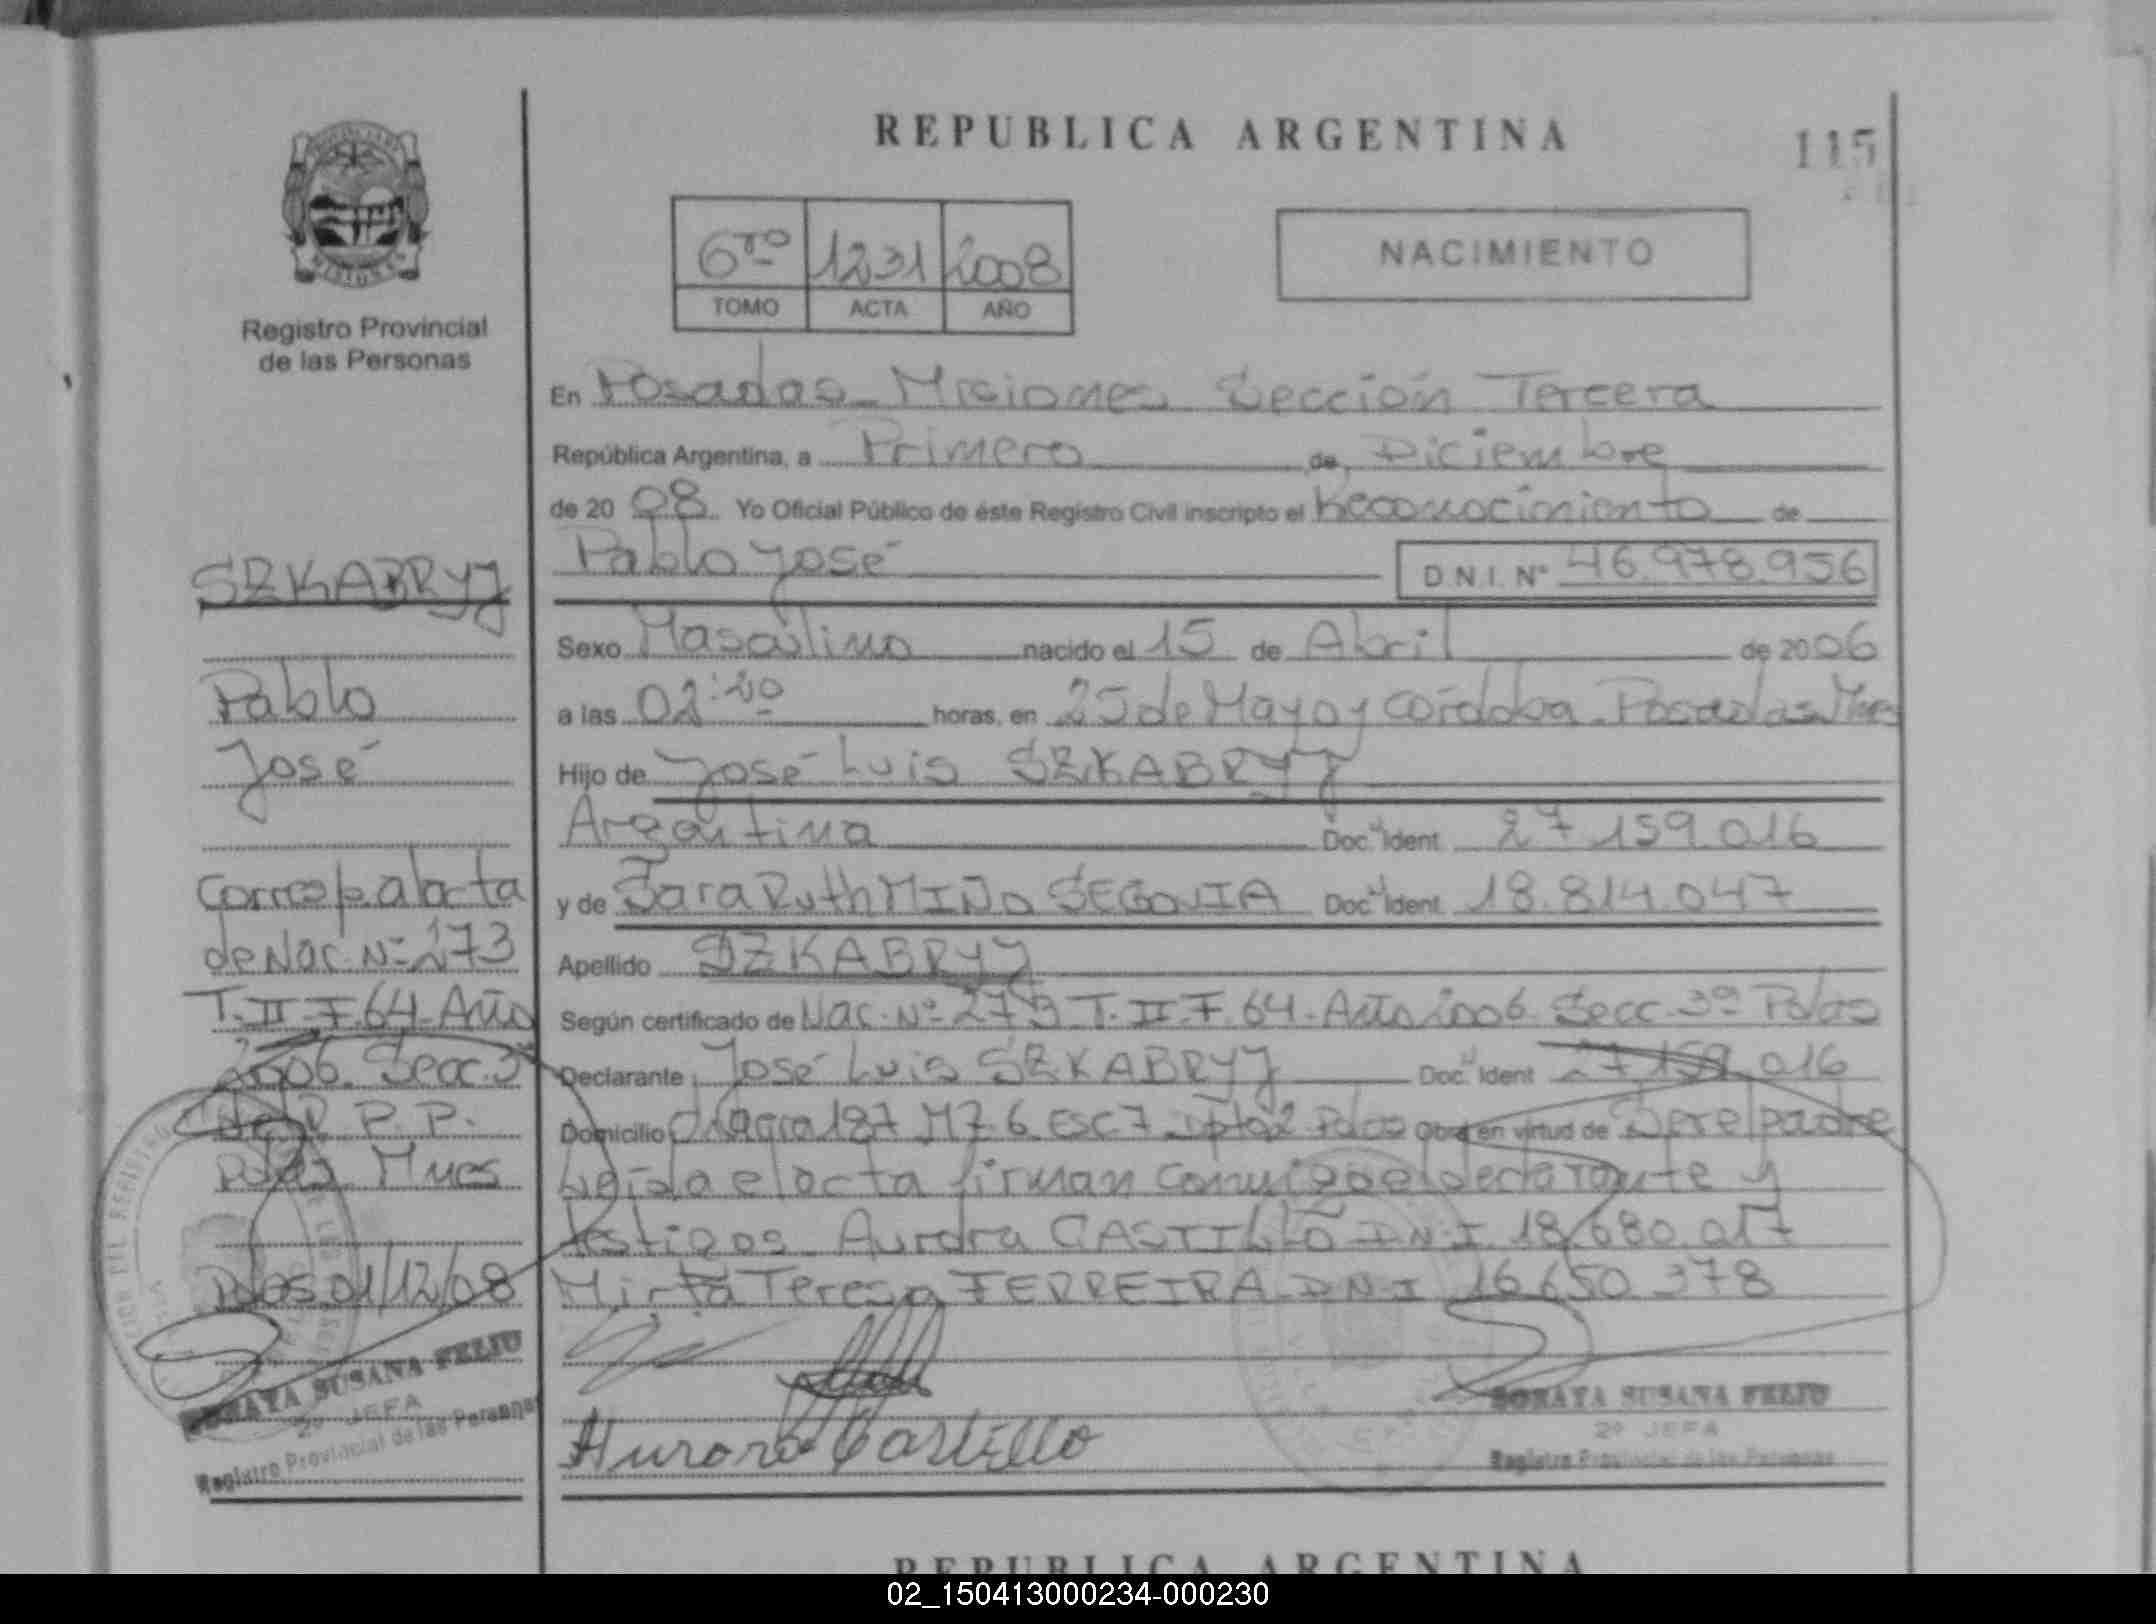 REPUBLICA ARGENTINA
115
MISIONES
Registro Provincial
de las Personas
6to 1231 2008
TOMO ACTA AÑO
NACIMIENTO
En Posadas Misiones Sección Tercera
República Argentina, a Primero de Diciembre
de 20 08 Yo Oficial Público de éste Registro Civil inscripto el Reconocimiento de
Pablo José D.N.I. Nº 46.978.956
Sexo Masculino nacido el 15 de Abril de 2006
a las horas, en 25 de Mayo y Córdoba Posadas Mnes
Hijo de José Luis SZKABRYJ
Argentina Doc. Ident. 27.159.016
y de Sara Ruth MIÑO SEGOVIA Doc. Ident. 18.814.047
Apellido SZKABRYJ
Según certificado de Nac. Nº 273 T. II F. 64 - Año 2006 Secc. 3ª Pdas
Declarante José Luis SZKABRYJ Doc. Ident 27.159.016
Domicilio Chacra 187 MZ 6 ESC 7 Dpto 2 Pdas Obra en virtud de Ser el padre
Leída el acta firman conmigo el declarante y
testigos Aurora CASTILLO D.N.I 18.680.017
Mirta Teresa FERREIRA D.N.I 16.650.378
Aurora Castillo
SORAYA SUSANA FELIU
2º JEFA
Registro Provincial de las Personas
SZKABRYJ
Pablo
José
Corresp. al acta
de Nac. Nº 273
T. II F. 64 - Año
2006. Secc. 3ª
del R. P. P.
Pdas Mnes
Pdas 01/12/08
SORAYA SUSANA FELIU
2º JEFA
Registro Provincial de las Personas
REPUBLICA ARGENTINA
02_150413000234-000230